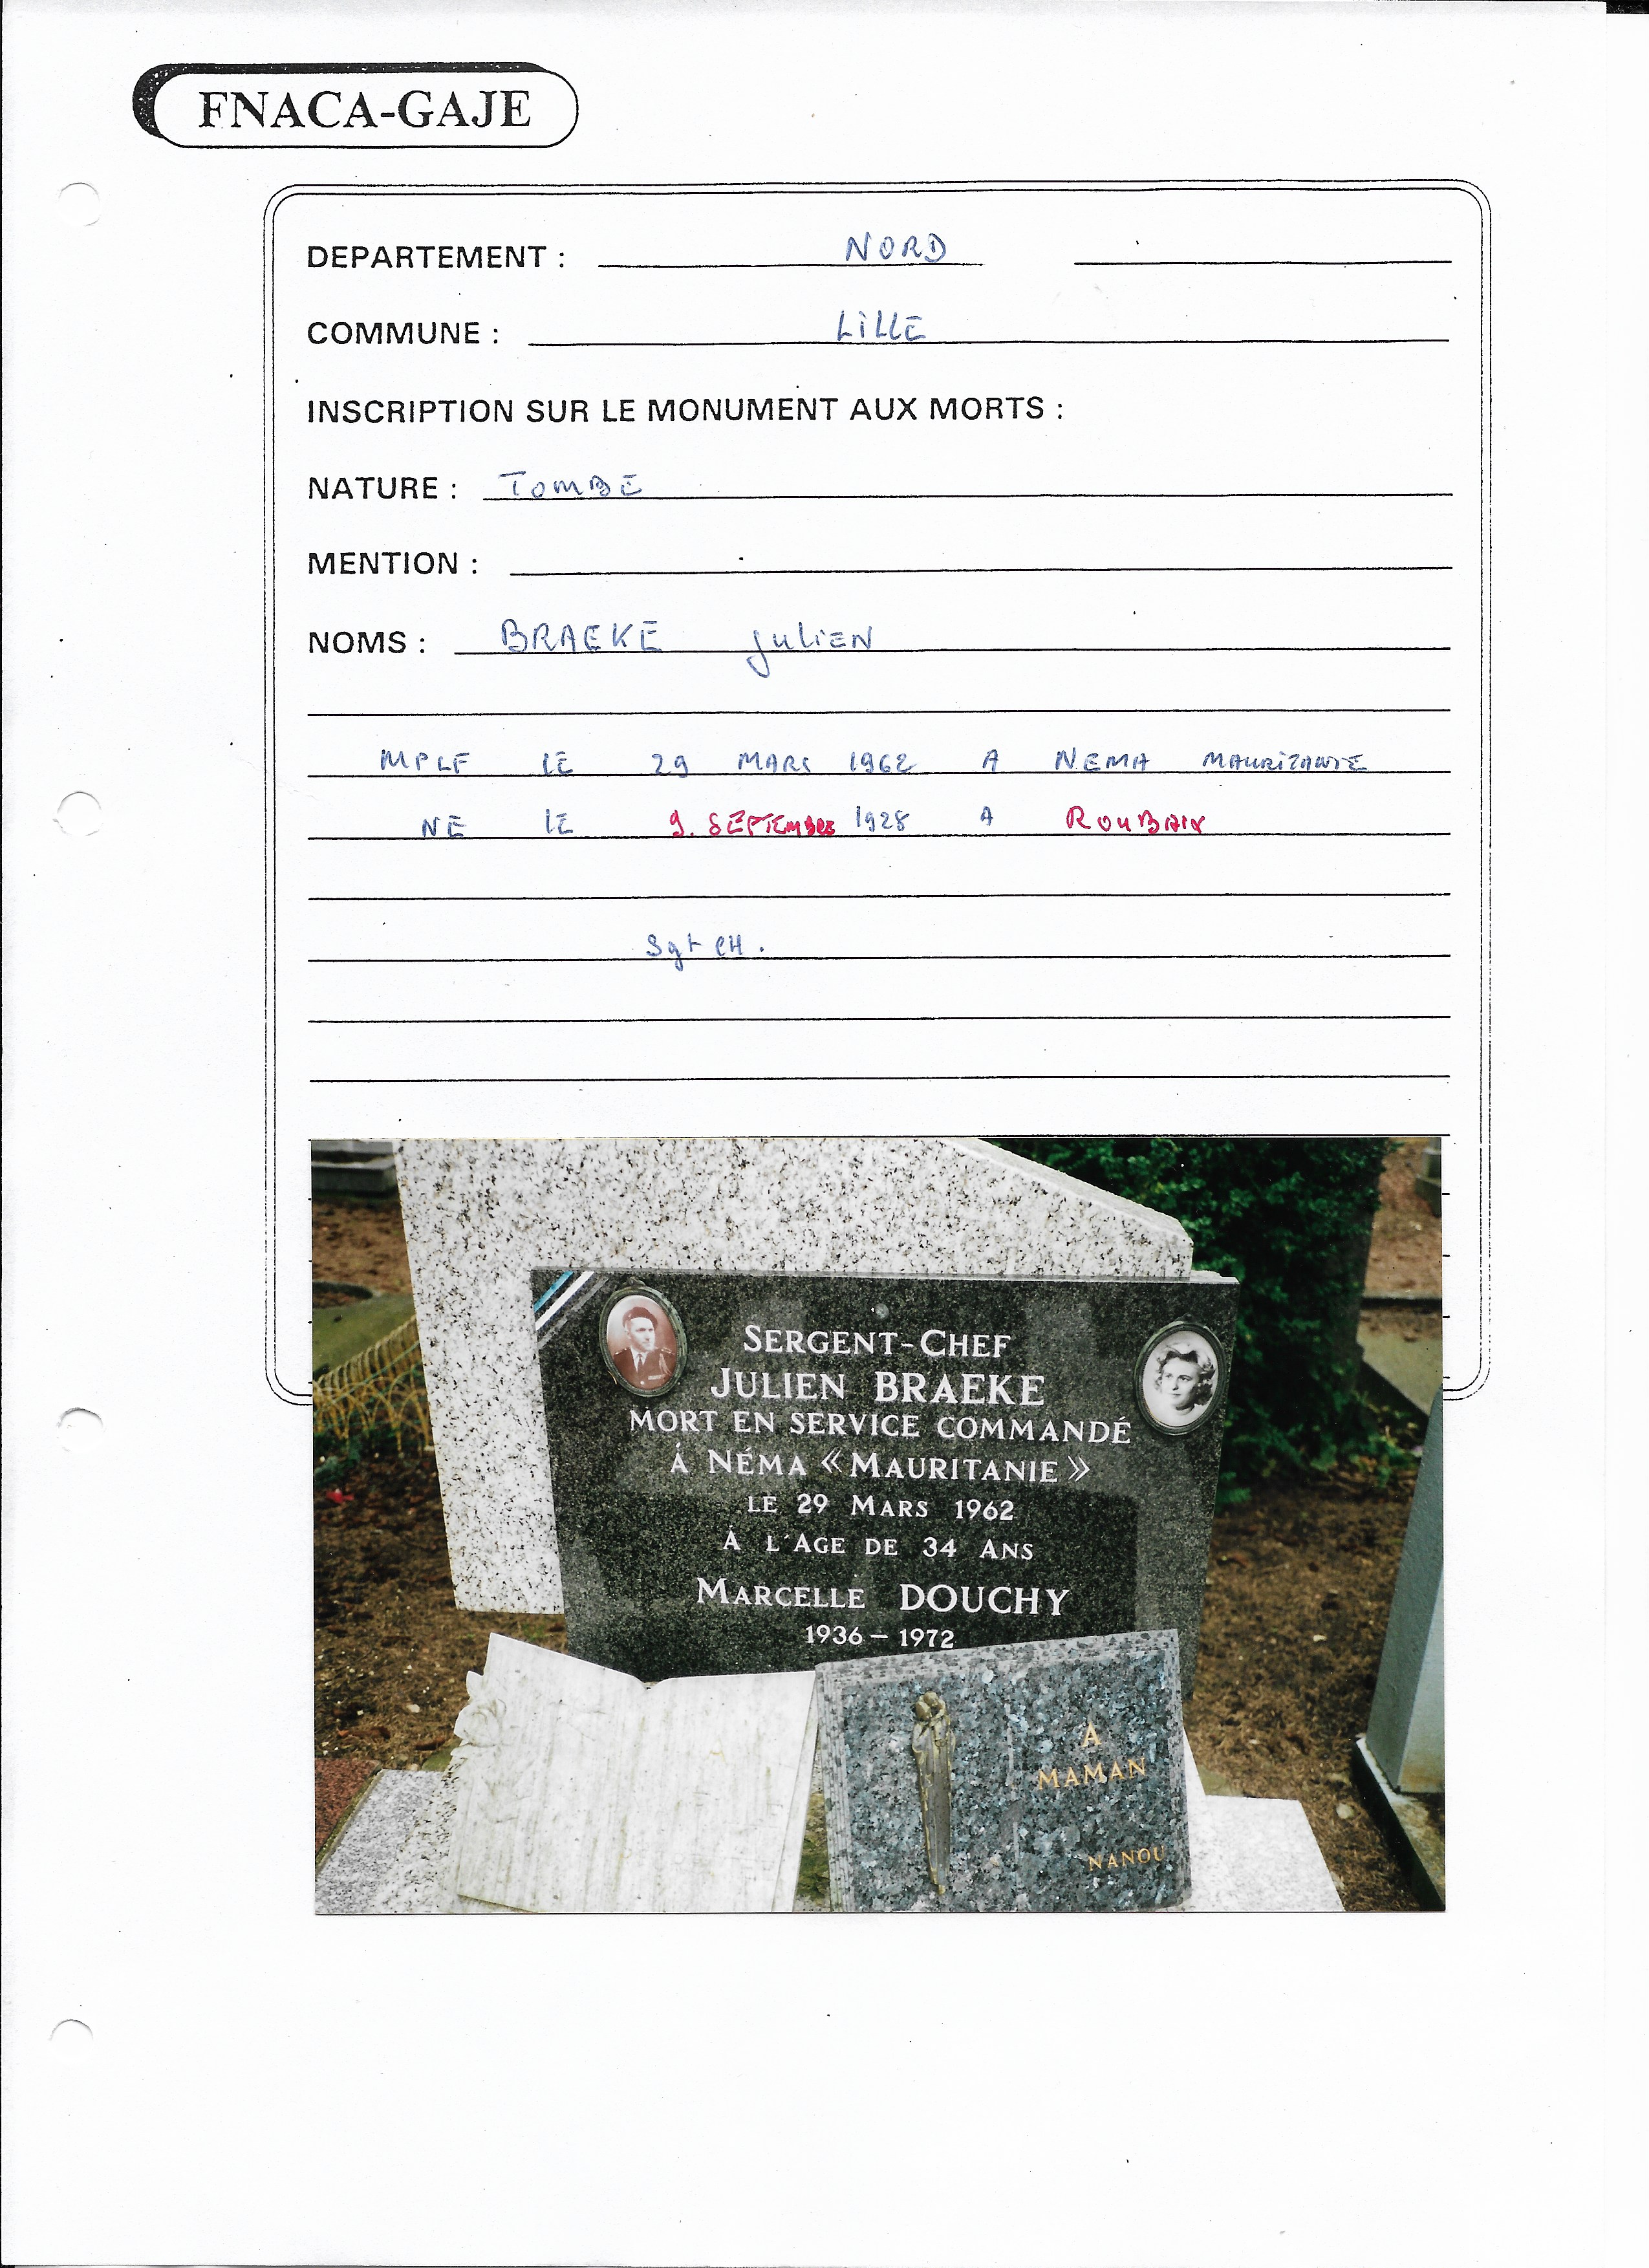 FNACA-GAJE
DEPARTEMENT : NORD
COMMUNE : LILLE
INSCRIPTION SUR LE MONUMENT AUX MORTS :
NATURE : TOMBE
MENTION :
NOMS : BRAEKE Julien
MPLF LE 29 MARS 1962 A NEMA MAURITANIE
NE LE 9. SEPTEMBRE 1928 A ROUBAIX
Sgt CH.
SERGENT-CHEF
JULIEN BRAEKE
MORT EN SERVICE COMMANDÉ
À NÉMA « MAURITANIE »
LE 29 MARS 1962
À L'AGE DE 34 ANS
MARCELLE DOUCHY
1936 – 1972
À
MAMAN
NANOU